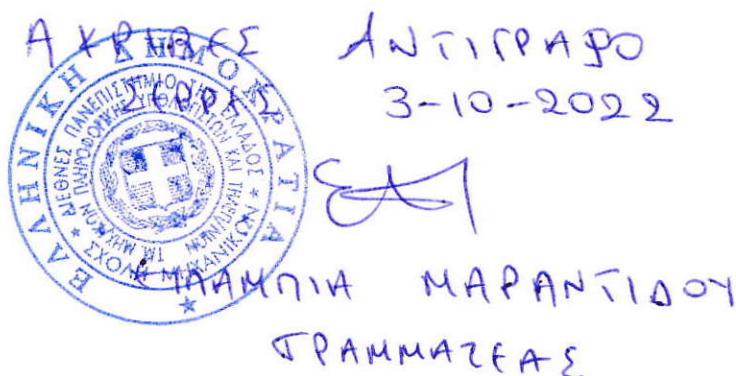 ΑΚΡΙΒΕΣ ΑΝΤΙΓΡΑΦΟ
ΣΕΡΡΕΣ 3-10-2022
ΕΛΛΗΝΙΚΗ ΔΗΜΟΚΡΑΤΙΑ
ΔΙΕΘΝΕΣ ΠΑΝΕΠΙΣΤΗΜΙΟ ΤΗΣ ΕΛΛΑΔΟΣ
ΣΧΟΛΗ ΜΗΧΑΝΙΚΩΝ
ΤΜ ΜΗΧΑΝΙΚΩΝ ΠΛΗΡΟΦΟΡΙΚΗΣ ΥΠΟΛΟΓΙΣΤΩΝ ΚΑΙ ΤΗΛΕΠΙΚΟΙΝΩΝΙΩΝ
ΜΑΡΑΝΤΙΔΟΥ
ΓΡΑΜΜΑΤΕΑΣ